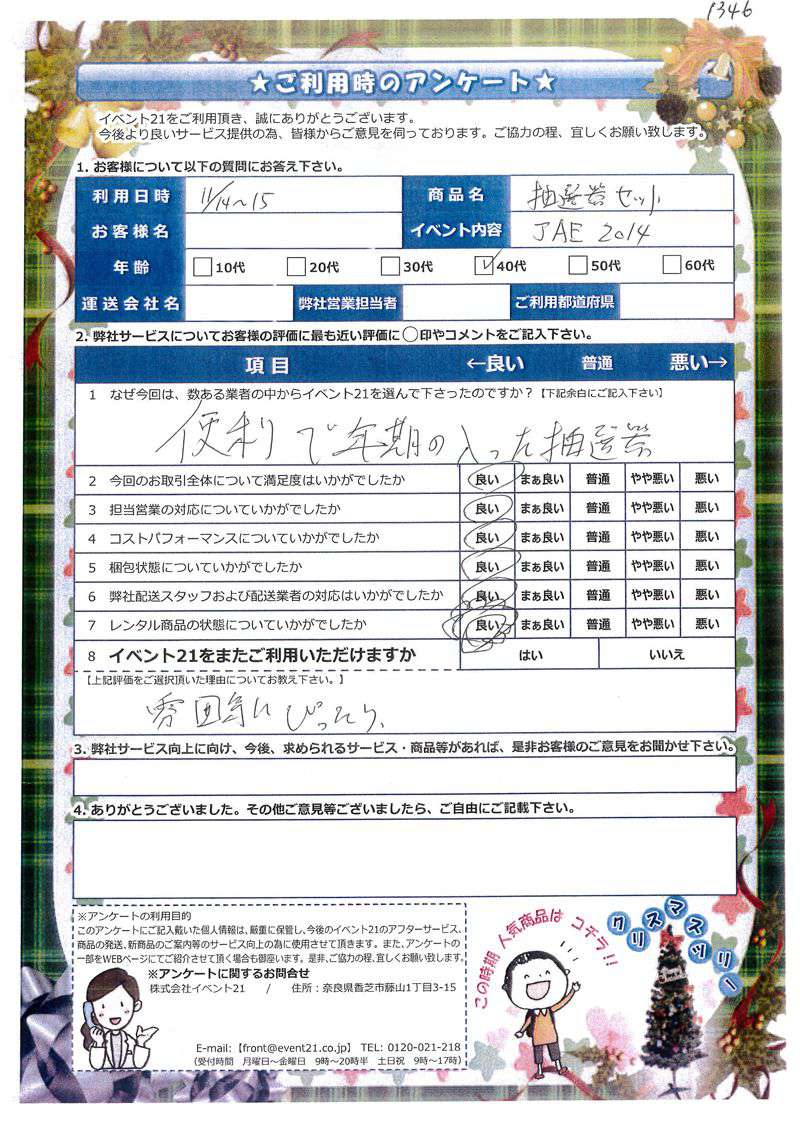 1346
★ご利用時のアンケート★
イベント21をご利用頂き、誠にありがとうございます。
今後より良いサービス提供の為、皆様からご意見を伺っております。ご協力の程、宜しくお願い致します。
1. お客様について以下の質問にお答え下さい。
利用日時 11/14~15 商品名 抽選器セット
お客様名 イベント内容 JAE 2014
年齢 10代 20代 30代 40代 50代 60代
運送会社名 弊社営業担当者 ご利用都道府県
2. 弊社サービスについてお客様の評価に最も近い評価に○印やコメントをご記入下さい。
項目 ←良い 普通 悪い→
1 なぜ今回は、数ある業者の中からイベント21を選んで下さったのですか?【下記余白にご記入下さい】
便利で年期の入った抽選器
2 今回のお取引全体について満足度はいかがでしたか 良い まぁ良い 普通 やや悪い 悪い
3 担当営業の対応についていかがでしたか 良い まぁ良い 普通 やや悪い 悪い
4 コストパフォーマンスについていかがでしたか 良い まぁ良い 普通 やや悪い 悪い
5 梱包状態についていかがでしたか 良い まぁ良い 普通 やや悪い 悪い
6 弊社配送スタッフおよび配送業者の対応はいかがでしたか 良い まぁ良い 普通 やや悪い 悪い
7 レンタル商品の状態についていかがでしたか 良い まぁ良い 普通 やや悪い 悪い
8 イベント21をまたご利用いただけますか はい いいえ
【上記評価をご選択頂いた理由についてお教え下さい。】
雰囲気にぴったり、
3. 弊社サービス向上に向け、今後、求められるサービス・商品等があれば、是非お客様のご意見をお聞かせ下さい。
4. ありがとうございました。その他ご意見等ございましたら、ご自由にご記載下さい。
※アンケートの利用目的
このアンケートにご記入戴いた個人情報は、厳重に保管し、今後のイベント21のアフターサービス、
商品の発送、新商品のご案内等のサービス向上の為に使用させて頂きます。また、アンケートの
一部をWEBページにてご紹介させて頂く場合も御座います。是非、ご協力の程、宜しくお願い致します。
※アンケートに関するお問合せ
株式会社イベント21 / 住所:奈良県香芝市藤山1丁目3-15
E-mail:【front@event21.co.jp】 TEL: 0120-021-218
(受付時間 月曜日~金曜日 9時~20時半 土日祝 9時~17時)
この時期 人気商品は コチラ!!
クリスマスツリー